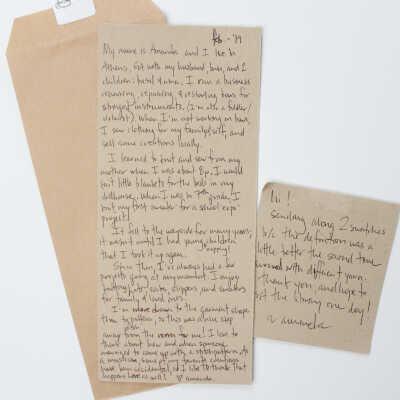 Feb - '19
My name is Amanda and I live in
Athens, GA with my husband, and 2
children. I run a business
rehairing, repairing, & restoring bows for
stringed instruments. (I'm also a fiddler/
violinist). When I'm not working on bows,
I sew clothing for my family/self, and
sell some creations locally.
I learned to knit and sew from my
mother when I was about 8y. I would
knit little blankets for the beds in my
dollhouse. When I was in grade, I
knit my first sweater for a school expo
project!
It fell to the wayside for many years;
it wasn't until I had young children
that I took it up again.
Since then, I've always had a few
projects going at any moment. I enjoy
knitting hats, slippers and sweaters
for family & loved ones.
I'm more drawn to the garment shape
than to pattern, so this was a nice step
away from the norm for me! I love to
think about how and when someone
managed to come up with a stitch pattern. As
a musician, some of my favorite
have been accidental, so I like to think that
happens here as well! ♡ amanda.
hi!
sending along 2 swatches
b/c the definition was a
little better the second time
with different yarn.
thank you, and hope to
at the library one day!